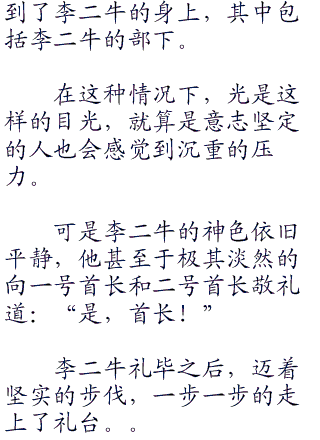 到了李二牛的身上，其中包
括李二牛的部下。
在这种情况下，光是这
样的目光，就算是意志坚定
的人也会感觉到沉重的压
力。
可是李二牛的神色依旧
平静，他甚至于极其淡然的
向一号首长和二号首长敬礼
道：“是，首长！”
李二牛礼毕之后，迈着
坚实的步伐，一步一步的走
上了礼台。。